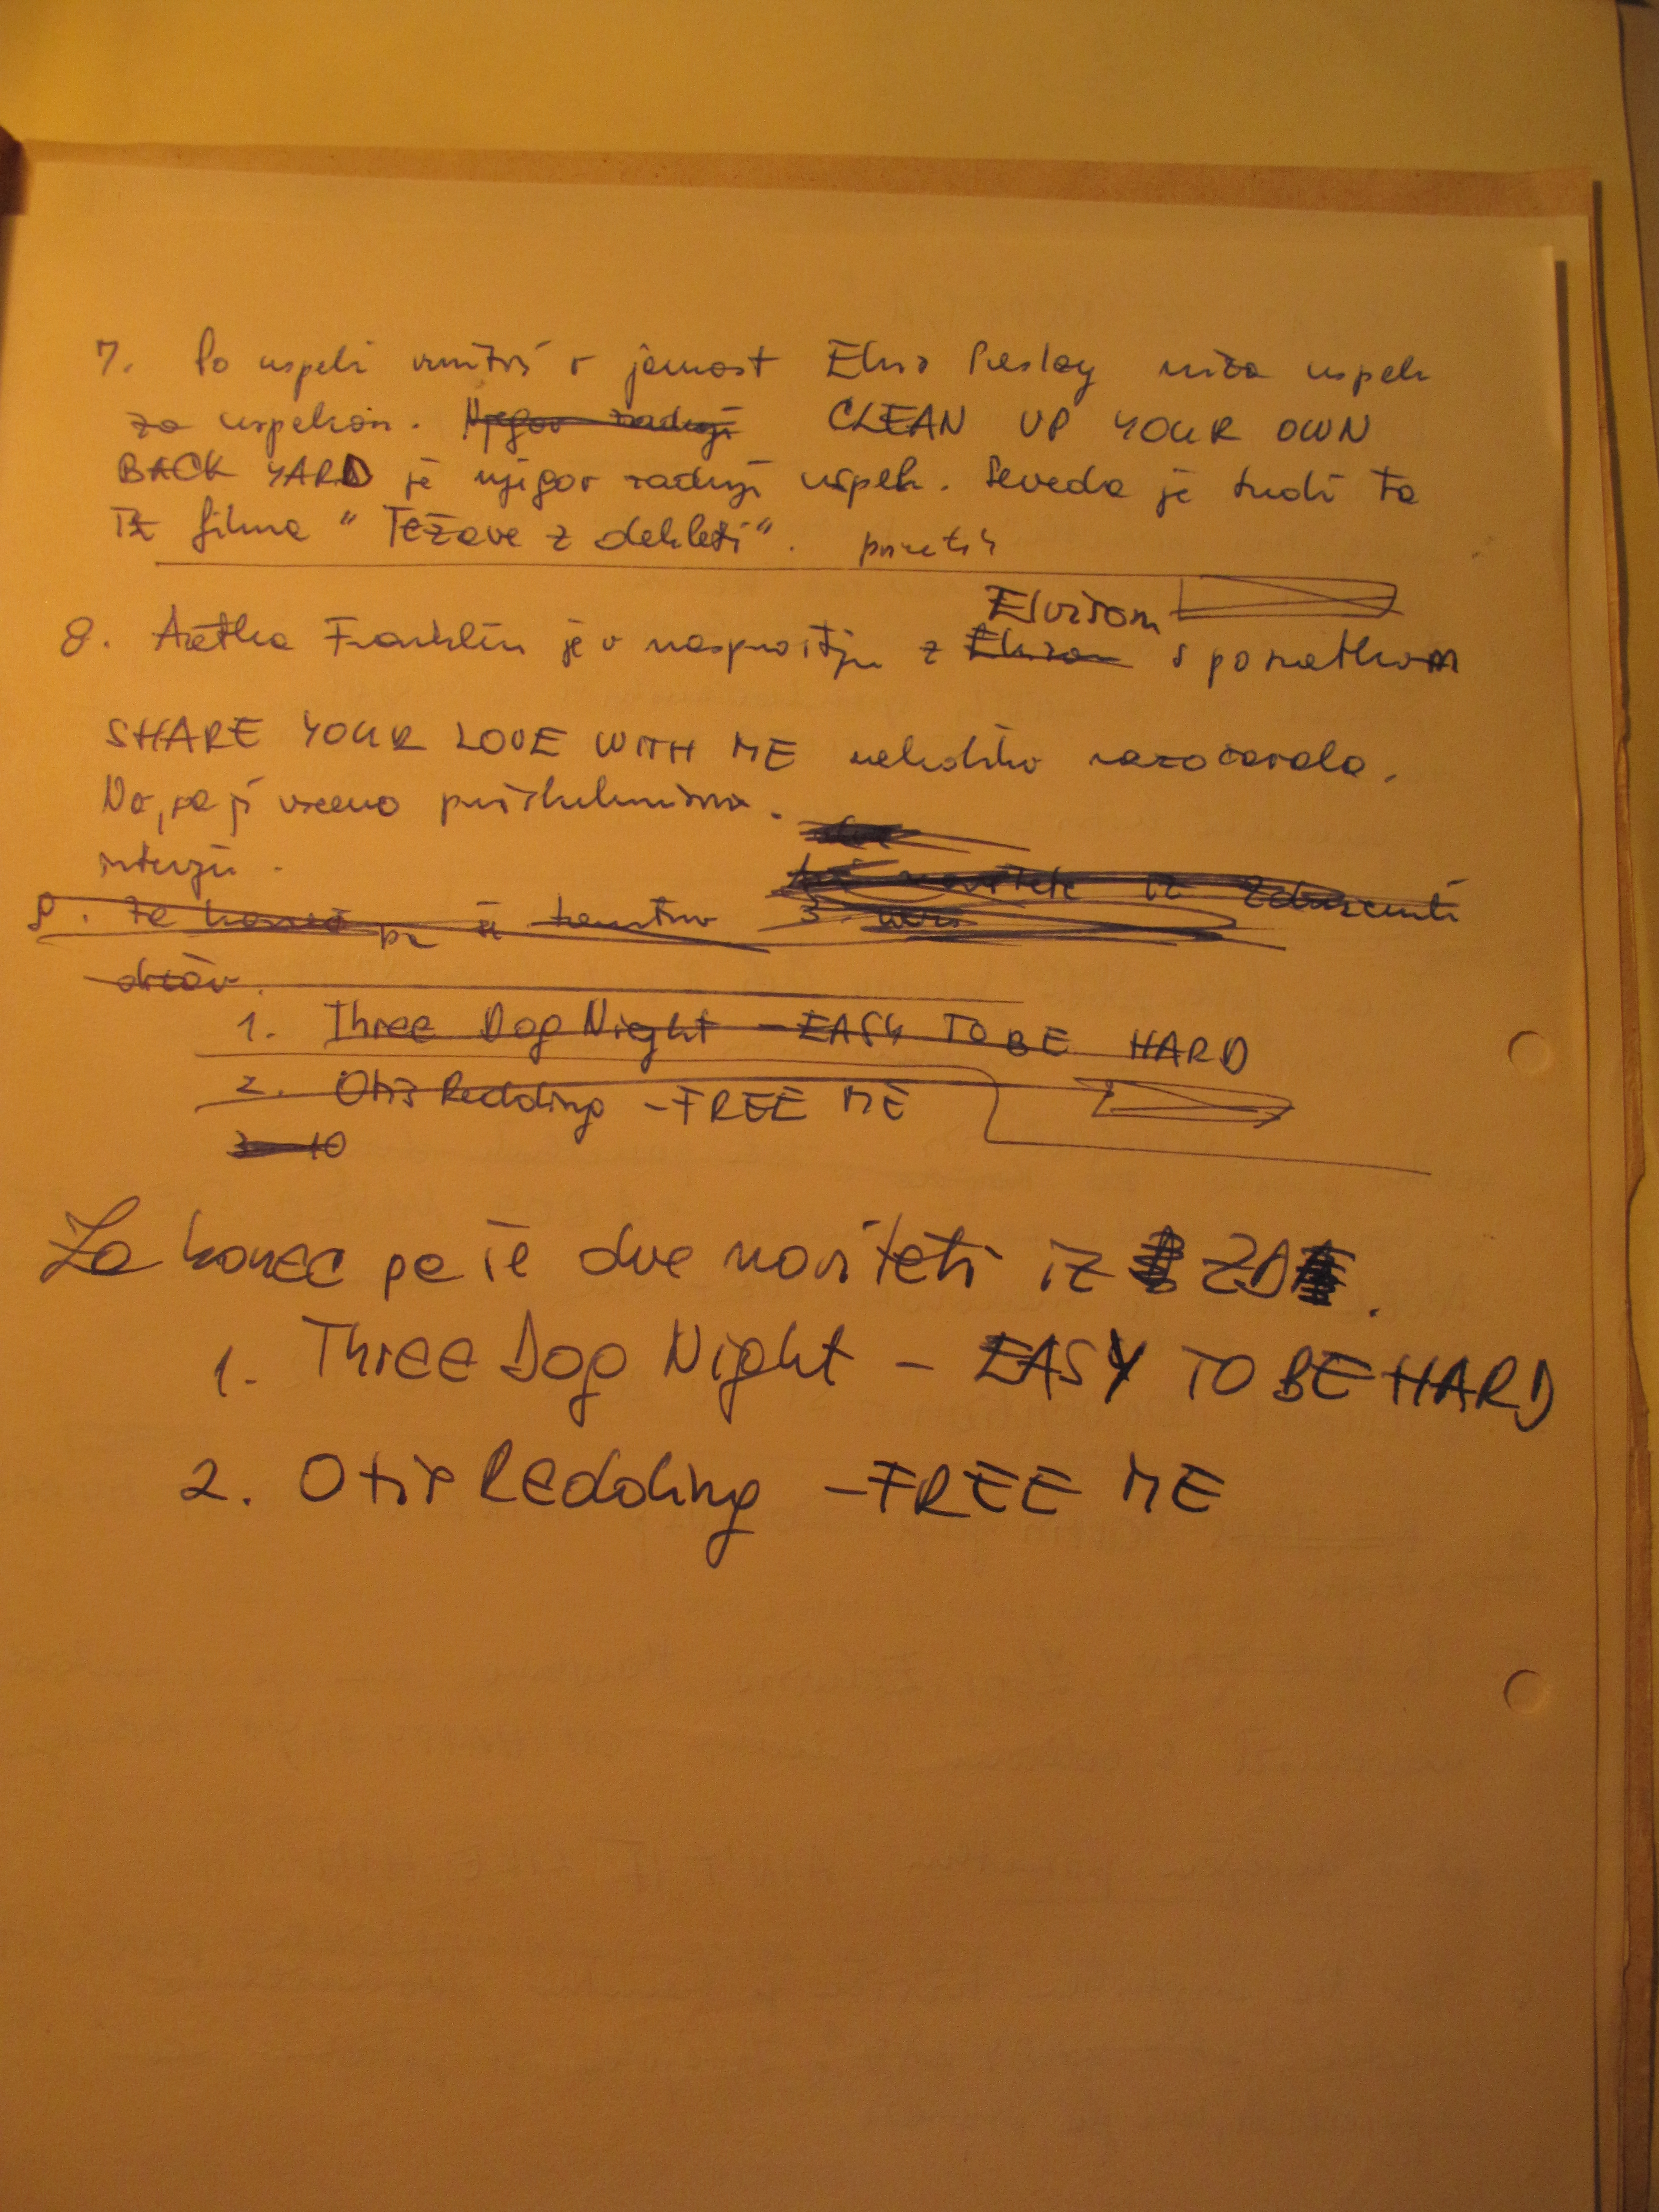 7. Po uspeli vrnitvi v javnost Elvis Presley niza uspeh
za uspehom. Njegov zadnji CLEAN UP YOUR OWN
BACK YARD je njegov zadnji uspeh. Seveda je tudi ta
iz filma "Težave z dekleti".
Elvisom
8. Aretha Franklin je v nasprotju z Elvisom s posnetkom
SHARE YOUR LOVE WITH ME nekoliko razočarala.
No, pa ji vseeno prisluhnimo.
9. Za konec pa še novitete iz Združenih
držav.
1. Three Dog Night - EASY TO BE HARD
2. Otis Redding - FREE ME
Za konec pa še dve noviteti iz ZDA.
1. Three Dog Night - EASY TO BE HARD
2. Otis Redding - FREE ME